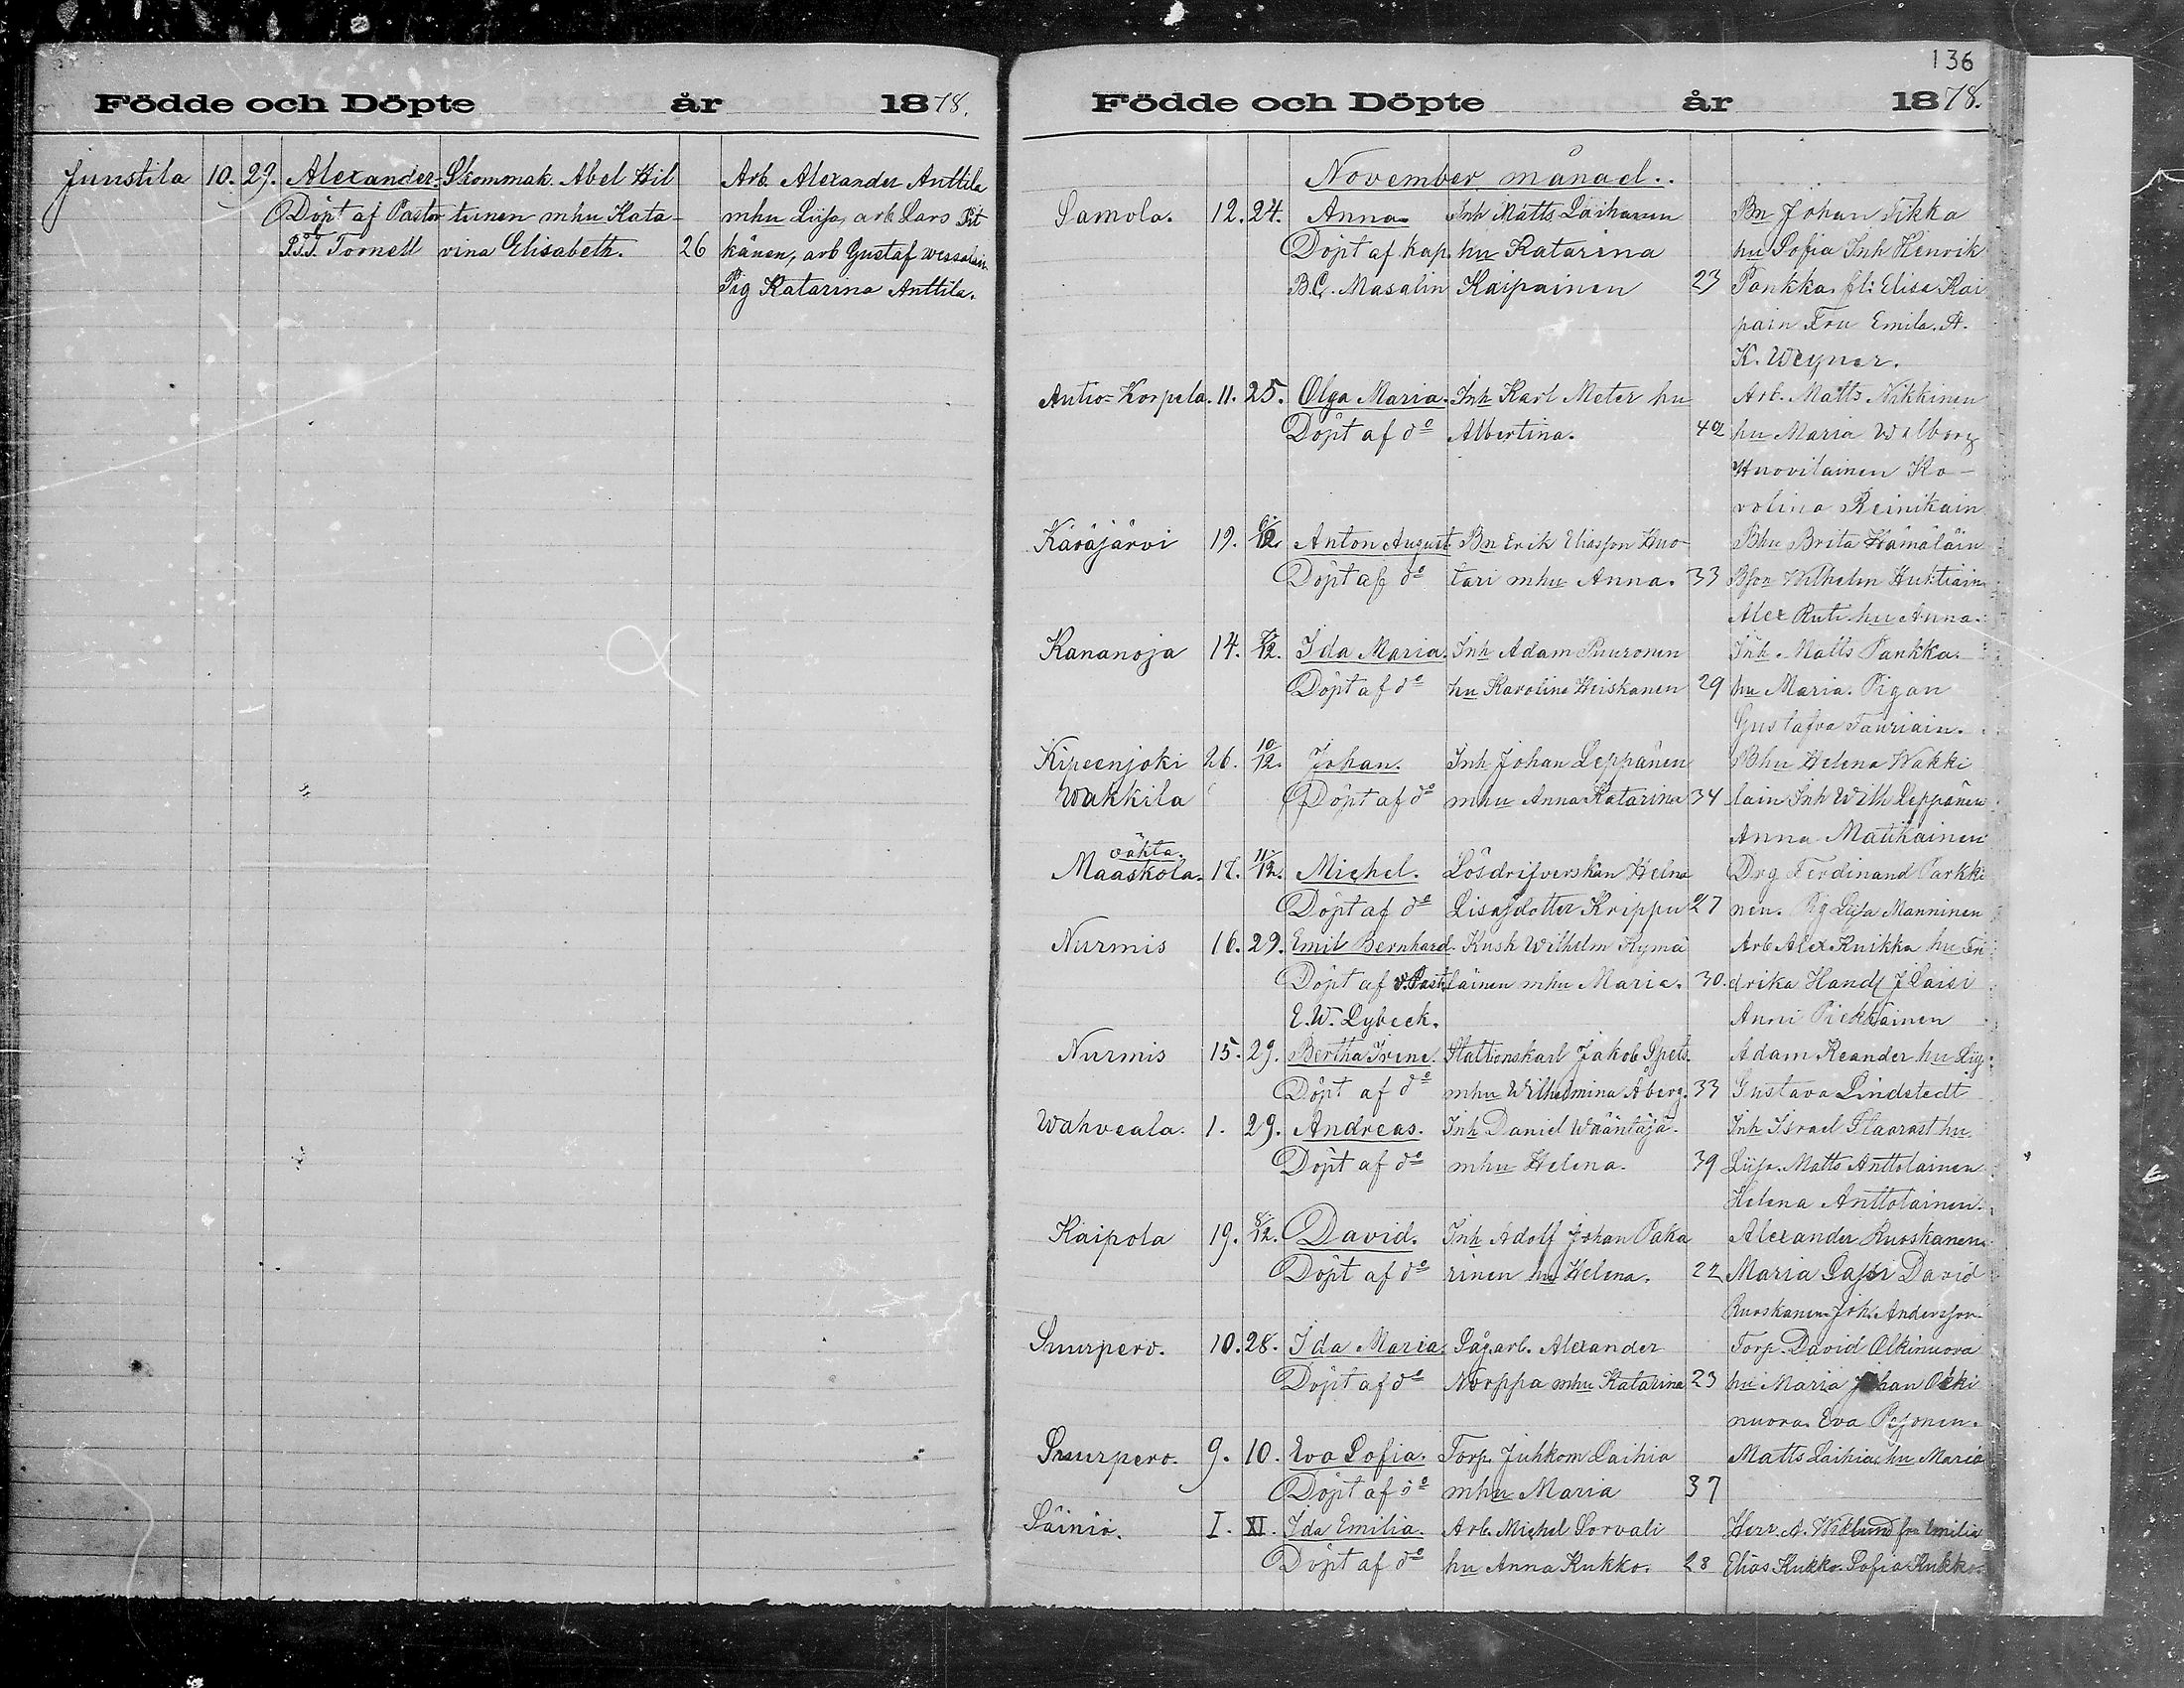 Födde och Döpte år 1878.
Junstila 10. 29. Alexander. Skommak. Abel Hil Arb. Alexander Anttila
Döpt af Pastor tunen mhu Kata- mhu Liisa, arb Lars Pit
P.J.J. Tornell vina Elisabeth. 26 känen, arb Gustaf Wessalain
Pig Katarina Anttila.
136
Födde och Döpte år 1878.
November månad.
Samola. 12. 24. Anna Inh Matts Laihanen Bn Johan Tikka
Döpt af kap. hu Katarina hu Sofia Inh Henrik
B.C. Masalin Kaipainen 23 Pankka fl: Elisa Kai
pain Fru Emila. A.
K. Weynar.
Autio-Korpela. 11. 25. Olga Maria. Inh Karl Meter hu Arb. Matts Nikkinen
Döpt af do Albertina. 42 hu Maria Wilborg
Huovilainen Ka-
rolina Reinikain
Käräjärvi 19. 6/12. Anton August Bn Erik Eliasson Huo- Bhu Brita Hämäläin
Döpt af do tari mhu Anna. 33 Bson Wilhelm Huktiain
Alex Ruti hu Anna.
Kananoja 14. /12. Ida Maria. Inh Adam Puuronen Inh. Matts Pankka
Döpt af do hu Karolina Heiskanen 29 hu Maria. Pigan
Gustafva Tauriain.
Kipeenjoki 26. 10/12. Johan. Inh Johan Leppänen Bhu Helena Wakki
Wakkila Döpt af do mhu Anna Katarina 34 lain Inh Wilh Leppänen
Anna Matikainen
vähta.
Maaskola. 18. 11/12. Michel. Lösdrifverskan Helna Drg Ferdinand Parkki
Döpt af do Lisasdotter Krippu 27 nen. Pig Liisa Manninen
Nurmis 16. 29. Emil Bernhard. Kusk Wilhelm Kymä Arb Alex Kuikka hu Fri
Döpt af v. Past. läinen mhu Maria. 30. drika Handl J Laisi
E.W. Lybeck. Anni Piekkainen
Nurmis 15. 29. Bertha Irene. Stationskarl Jakob Spets. Adam Reander hu
Döpt af do mhu Wilhelmina Åberg. 33 Gustava Lindstedt
Wahveala. 1. 29. Andreas. Inh Daniel Wääntäjä. Inh Israel Slaarast hu.
Döpt af do mhu Helena. 39 Liisa. Matts Anttolainen
Helena Anttolainen.
Kaipola 19. 8/12. David. Inh Adolf Johan Paka Alexander Ruoskanen
Döpt af do rinen hu Helena. 22 Maria Lassi David
Ruoskanen Joh. Andersson
Suurpero. 10. 28. Ida Maria. Sågarb. Alexander Torp. David Olkinuora
Döpt af do Norppa mhu Katarina 23 hu Maria Johan Olki
nuora. Eva Pesonen.
Suurpero. 9. 10. Eva Sofia. Torp. Juhkom Laihia Matts Laihia, hu Maria
Döpt af do mhu Maria 37
Säiniö. I. XI. Ida Emilia. Arb. Michel Sorvali Herr. A. Wiklund fru Emilia
Döpt af do hu Anna Kukko. 28 Elias Kukko. Sofia Kukko.